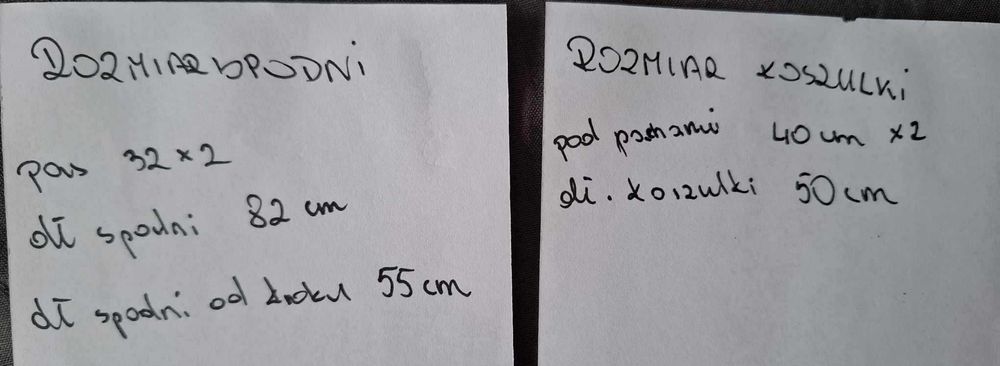 ROZMIAR SPODNI
pas 32 x 2
dł spodni 82 cm
dł spodni od kroku 55 cm
ROZMIAR KOSZULKI
pod pachami 40 cm x2
dł. koszulki 50 cm